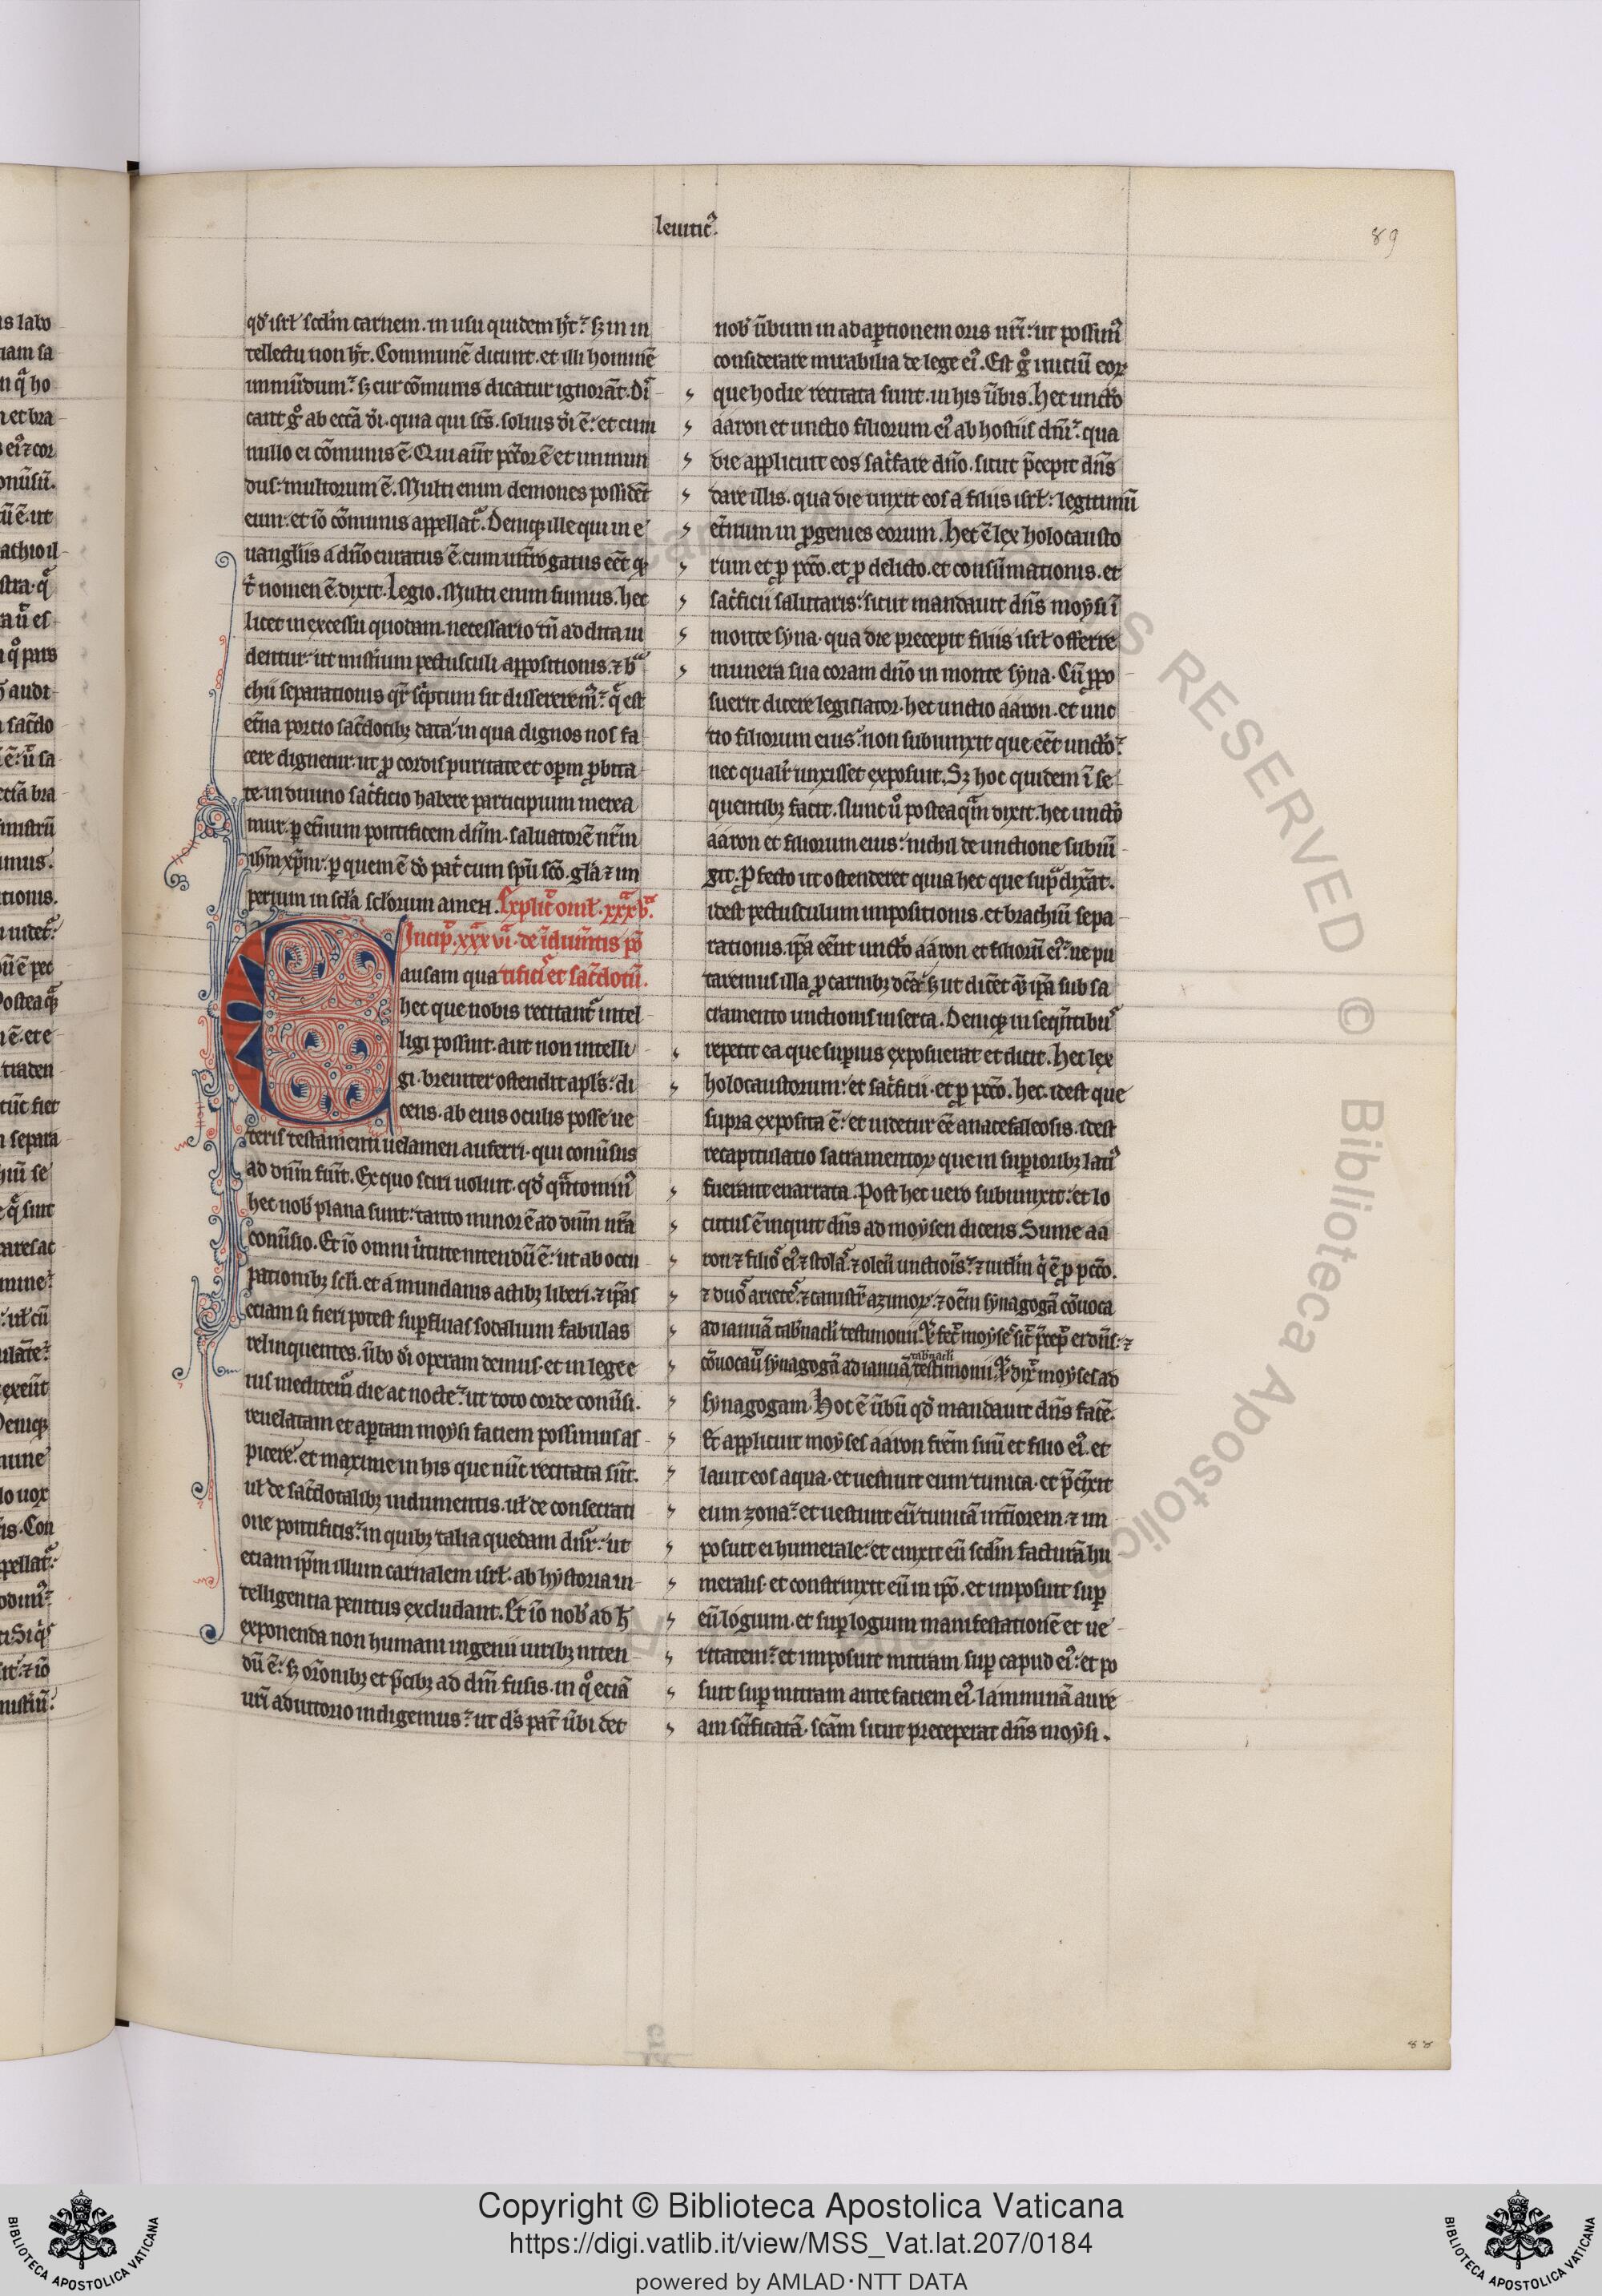 leuitic᷒.
89
qd᷒ isrł scdm̄ carnem. in usu quidem ht᷒. sꝫ in in
tellectu non ht᷒. Communē dicunt. et illi hominē
inmūdum. sꝫ cur cōmunis dicatur ignorāt. Di
cant gͦ ab eccā di. quia qui scs̄. solius di ē. et cum
nullo ei cōmunis ē. Qui aūt pctōr ē et inmun
dus. multorum ē. Multi enim demones possidēt
eum. et iō cōmunis appellat᷒. Deniqꝫ ille qui in e
uangliis a dn̄o curatus ē. cum int̄rogatus eēt qͥ
t᷒ nomen ē. dixit. Legio. Multi enim sumus. hec
licet in excessu quodam. necessario tn̄ addita ui
dentur. ut mist̄ium pectusculi appositionis. ⁊ bͣ
chii separationis qͬ scͥptum sit dissererem᷒. qͣ est
et̄na portio sac̄dotibꝫ data. in qua dignos nos fa
cere dignetur. ut ꝓ cordis puritate et oꝑm ꝓbita
te. in diuino sacͥficio habere participium merea
mur. ꝑ et̄num pontificem dn̄m. saluatorē nr̄m
ihm̄ xp̄m. ꝑ quem ē dō patͥ cum spū scō. gla᷒ ⁊ im
perium in scła sclorum amen. Explic̄ omł. xxxv.ͣ
Incip̄. xxxvi.ͣ de īdum̄tis pō
ausam qua tificū et sac̄dotū.
hec que nobis recitant᷒ intel
ligi possint. aut non intelli
gi. breuiter ostendit apls̄. di
cens. ab eius oculis posse ue
teris testamenti uelamen auferri. qui conūsus
ad dnm̄ fuīt. Ex quo sciri uoluit. qd᷒ qͣntominͥ
hec nob᷒ plana sunt. tanto minor ē ad dnm̄ nrā
conūsio. Et iō omni ūtute nitendū ē. ut ab occu
pationibꝫ scłi. et a mundanis actibꝫ liberi. ⁊ ip̄as
etiam si fieri potest suꝑfluas sodalium fabulas
relinquentes. ūbo di operam demus. et in lege e
ius meditem᷒ die ac nocte. ut toto corde conūsi.
reuelatam et aꝑtam moysi faciem possimus as
picere. et maxime in his que nūc recitata sūt.
uł de sac̄dotalibꝫ indumentis. uł de consecrati
one pontificis. in quibꝫ talia quedam dnr᷒. ut
etiam ip̄m illum carnalem isrł. ab hystoria in
telligentia penitus excludant. Et iō nob᷒ ad h᷒
exponenda non humani ingenii uiribꝫ niten
dū ē. sꝫ orōnibꝫ et p̄cibꝫ ad dm̄ fusis. in qͦ etiā
uri adiutorio indigemus. ut ds̄ pat̄ ūbi det
nob᷒ ūbum in adaꝑtionem oris nr̄i. ut possim᷒
considerare mirabilia de lege ei᷒. Est gͦ initiū eoꝝ
que hodie recitata sunt. in his ūbis. Hec unctͦo
aaron et unctio filiorum ei᷒ ab hostiis dn̄i. qua
die applicuit eos sac̄fare dn̄o. sicut p̄cepit dn̄s
dare illis. qua die unxit eos a filiis isrł. legitimū
et̄num in ꝓgenies eorum. Hec ē lex holocausto
rum et ꝓ pccō. et ꝓ delicto. et consūmationis. et
sacͥficii salutaris. sicut mandauit dn̄s moysi ī
monte syna. qua die precepit filiis isrł offerre
munera sua coram dn̄o in monte syna. Cū ꝓpo
suerit dicere legislator. hec unctio aaron. et unc
tio filiorum eius. non subiunxit que eēt unctͦo.
nec qualit᷒ unxisset exposuit. Sꝫ hoc quidem ī se
quentibꝫ facit. Nunc ū posteaqͣm dixit. hec unctͦo
aaron et filiorum eius. nichil de unctione subiū
git. ꝓfecto ut ostenderet quia hec que supͣ dixāt.
idest pectusculum impositionis. et brachiū sepa
rationis. ip̄a eēnt unctͦo aaron et filiorū ei᷒. ne pu
taremus illa ꝓ carnibꝫ dcā. sꝫ ut dicēt qͥ ip̄a sub sa
cramento unctionis inserta. Deniqꝫ in seqn̄tibu᷒
repetit ea que suꝑius exposuerat et dicit. Hec lex
holocaustorum. et sacͥficii. et ꝓ pccō. hec. idest que
supra exposita ē. et uidetur eē anacefalleosis. idest
recapitulatio sacramentoꝝ que in suꝑioribꝫ lati᷒
fuerant enarrata. Post hec uero subiunxit. et lo
cutus ē inquit dn̄s ad moysen dicens. Sume aa
ron ⁊ filios ei᷒. ⁊ stolas. ⁊ oleū unctiois̄. ⁊ uitłm qͥ ē ꝓ pccō.
⁊ duos arietes. ⁊ canistr̄ azimoꝝ. ⁊ oēm synagogā cōuoca
ad ianuā tab̄nacłi testimonii. Et fec̄ moyses sic̄ p̄cep̄ ei dn̄s. ⁊
cōuocau̅ synagogā ad ianuā tab̄nacłi testimonii. Et dix̄ moyses ad
synagogam. Hoc ē ūbū qd᷒ mandauit dn̄s facē.
Et applicuit moyses aaron frēm suū et filio ei᷒. et
lauit eos aqua. et uestiuit eum tunica. et p̄cīxit
eum zona. et uestiuit eū tunicā int̄iorem. ⁊ im
posuit ei humerale. et cinxit eū scdm̄ facturā hu
meralis. et constrinxit eū in ip̄o. et imposuit suꝑ
eū logium. et suꝑ logium manifestationē et ue
ritatem. et imposuit mitram suꝑ capud ei᷒. et po
suit suꝑ mitram ante faciem ei᷒. lamminā aure
am scīficatā. scām sicut preceperat dn̄s moysi.
88
Copyright © Biblioteca Apostolica Vaticana
https://digi.vatlib.it/view/MSS_Vat.lat.207/0184
powered by AMLAD·NTT DATA
BIBLIOTECA APOSTOLICA VATICANA
BIBLIOTECA APOSTOLICA VATICANA